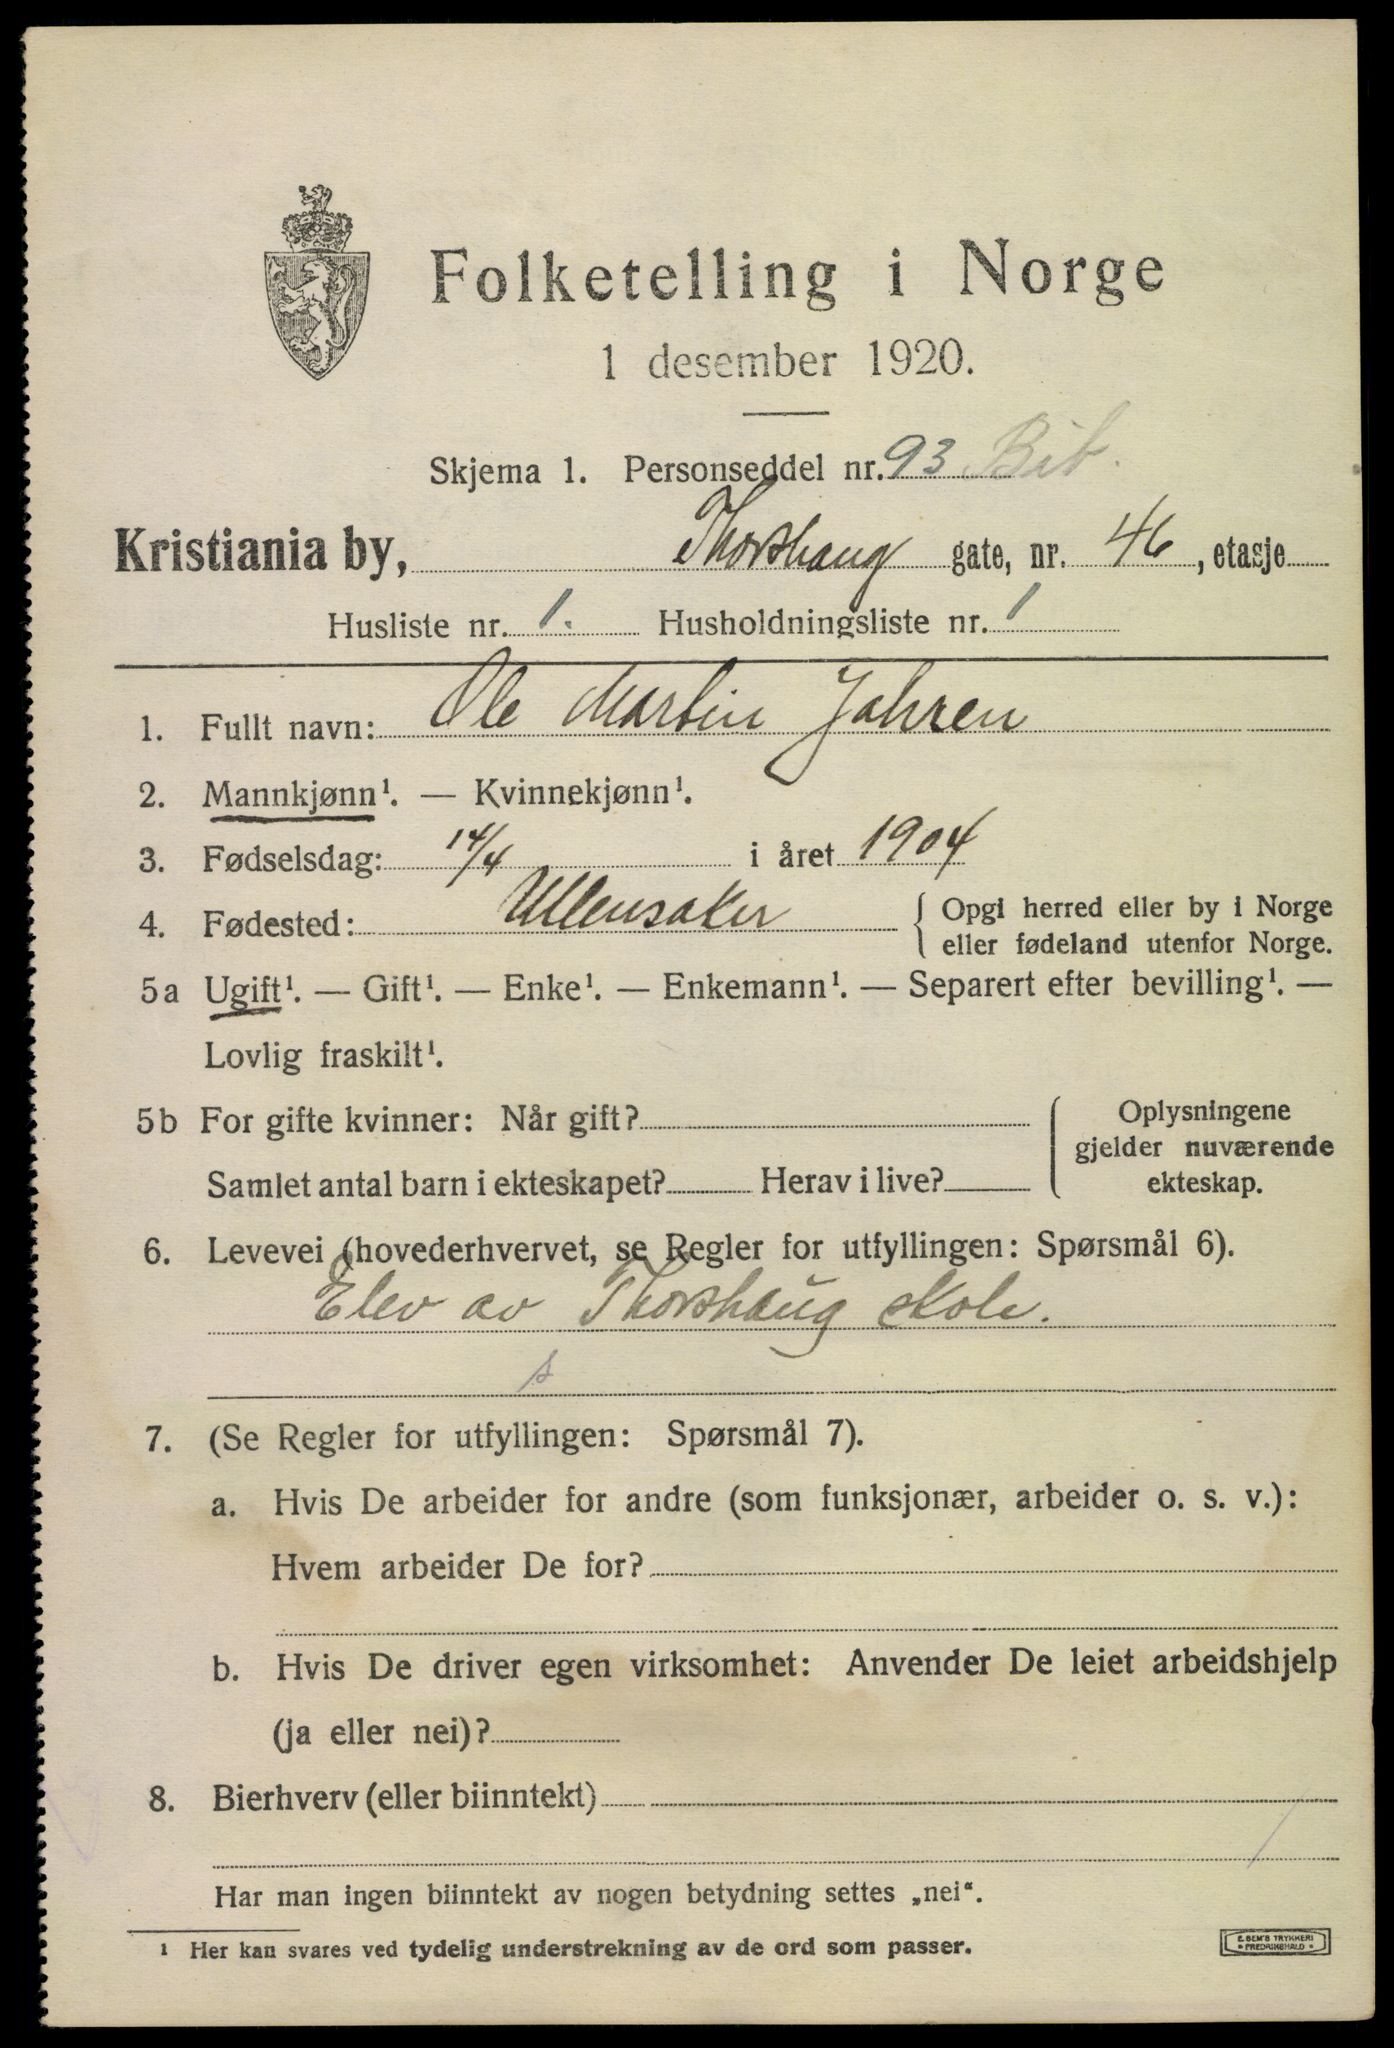 Folketelling i Norge
1 desember 1920.
Skjema 1. Personseddel nr. 93 Bib.
Kristiania by, Thorshaug gate, nr. 46, etasje
Husliste nr. 1. Husholdningsliste nr. 1
1. Fullt navn: Ole Martin Jahren
2. Mannkjønn¹. — Kvinnekjønn¹.
3. Fødselsdag: 14/4 i året 1904
4. Fødested: Ullensaker { Opgi herred eller by i Norge
eller fødeland utenfor Norge.
5a Ugift¹. — Gift¹. — Enke¹. — Enkemann¹. — Separert efter bevilling¹. —
Lovlig fraskilt¹.
5b For gifte kvinner: Når gift? { Oplysningene
gjelder nuværende
Samlet antal barn i ekteskapet? Herav i live? ekteskap.
6. Levevei (hovederhvervet, se Regler for utfyllingen: Spørsmål 6).
Elev av Thorshaug skole.
s
7. (Se Regler for utfyllingen: Spørsmål 7).
a. Hvis De arbeider for andre (som funksjonær, arbeider o. s. v.):
Hvem arbeider De for?
b. Hvis De driver egen virksomhet: Anvender De leiet arbeidshjelp
(ja eller nei)?
8. Bierhverv (eller biinntekt)
Har man ingen biinntekt av nogen betydning settes „nei“.
¹ Her kan svares ved tydelig understrekning av de ord som passer.
E. SEM'S TRYKKERI
FREDRIKSHALD